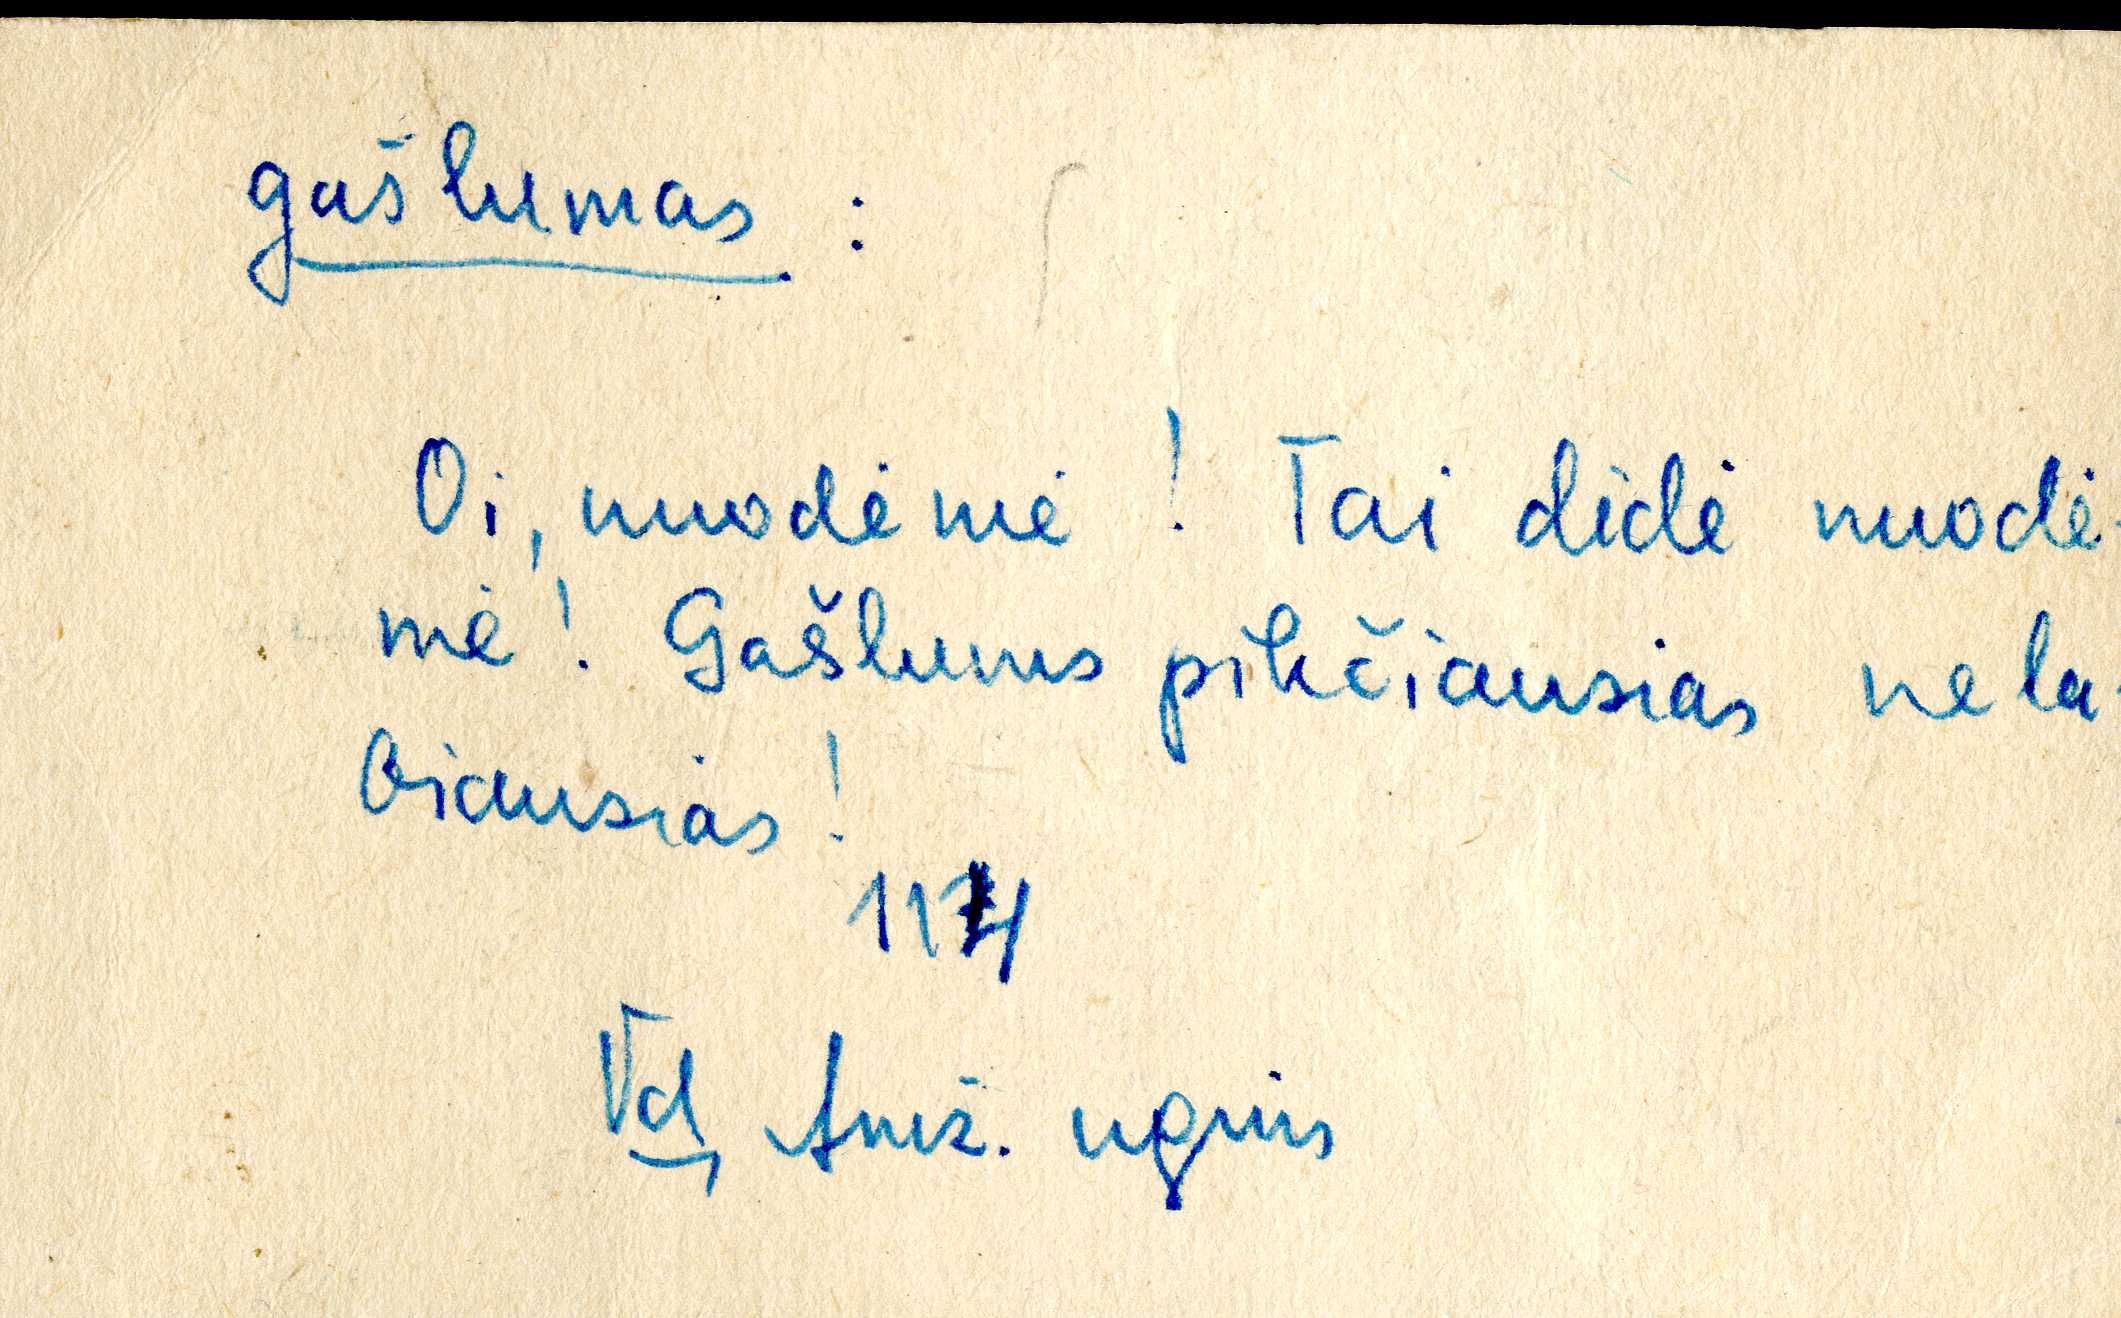 gašlumas :
Oi, nuodėmė ! Tai didė nuodė-
mė ! Gašlums pikčiausias nela-
biausias !
114
Vd, Amž. ugnis